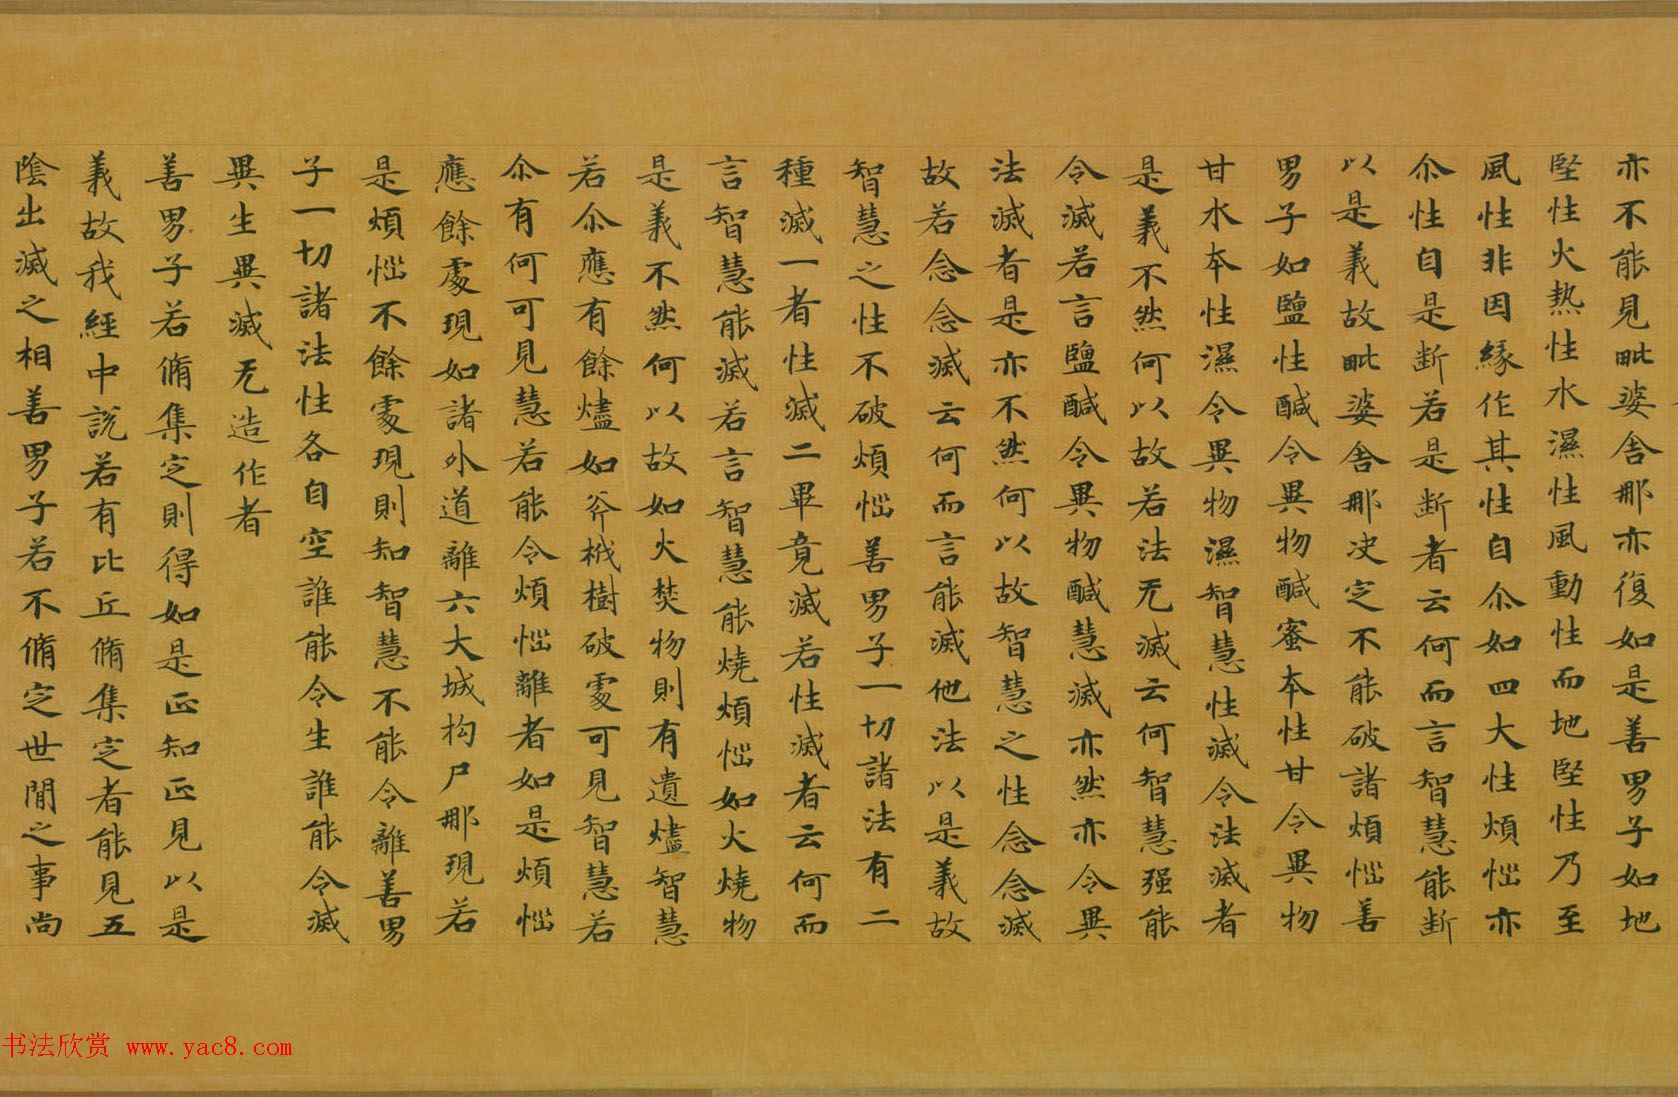 亦不能見毗婆舍那亦復如是善男子如地
堅性火热性水濕性風動性而地堅性乃至
風性非因緣作其性自尒如四大性煩惱亦
尒性自是断若是断者云何而言智慧能断
以是義故毗婆舍那决定不能破諸煩惱善
男子如鹽性醎令異物醎蜜本性甘令異物
甘水本性濕令異物濕智慧性滅令法滅者
是義不然何以故若法无滅云何智慧强能
令滅若言鹽醎令異物醎慧滅亦然亦令異
法滅者是亦不然何以故智慧之性念念滅
故若念念滅云何而言能滅他法以是義故
智慧之性不破煩惱善男子一切諸法有二
種滅一者性滅二畢竟滅若性滅者云何而
言智慧能滅若言智慧能燒煩惱如火燒物
是義不然何以故如火焚物則有遺燼智慧
若尒應有餘燼如斧栰樹破處可見智慧若
尒有何可見慧若能令煩惱離者如是煩惱
應餘處現如諸外道離六大城构尸那現若
是煩惱不餘處現則知智慧不能令離善男
子一切諸法性各自空誰能令生誰能令滅
異生異滅无造作者
善男子若脩集定則得如是正知正見以是
義故我經中說若有比丘脩集定者能見五
陰出滅之相善男子若不脩定世間之事尚
书法欣赏 www.yac8.com